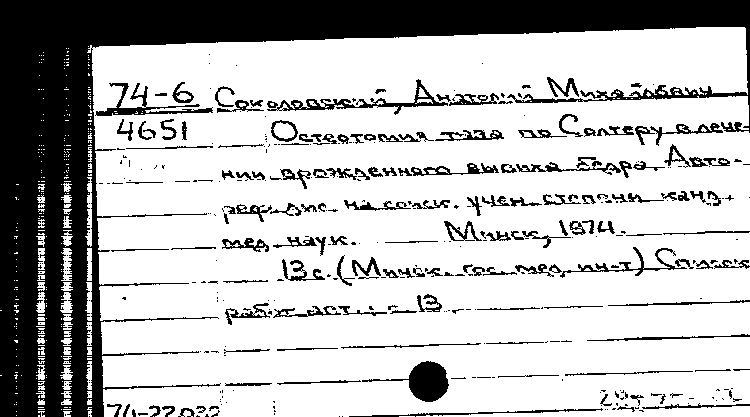 74-6 Соколовский, Анатолий Михайлович
4651 Остеотомия таза по Солтеру в лече-
нии врожденного вывиха бедра. Авто-
реф. дис. на соиск. учен. степени канд.
мед. наук. Минск, 1974.
13 с. (Минск. гос. мед. ин-т) Список
работ авт.: с. 13
74-22032